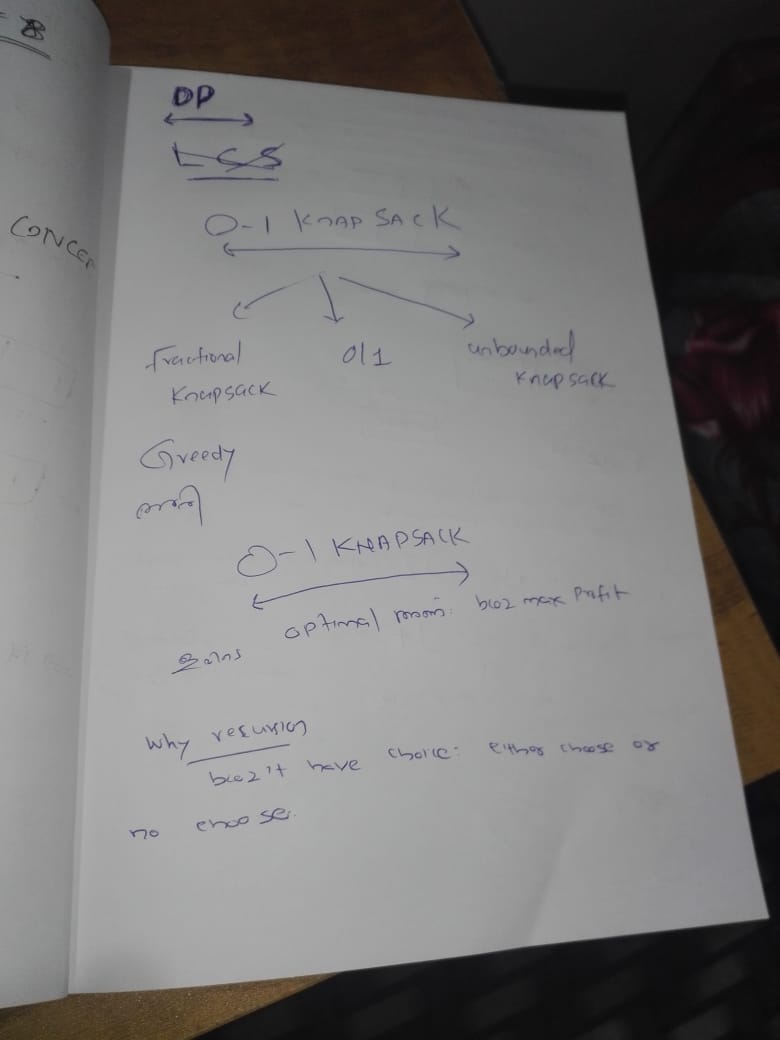 8
CONCEP
DP
LCS
0-1 KNAPSACK
fractional
Knapsack
0/1
unbounded
Knapsack
Greedy
മതി
0-1 KNAPSACK
optimal bcoz max Profit
Why recursion
bcoz it have choice: either choose or
no choose.